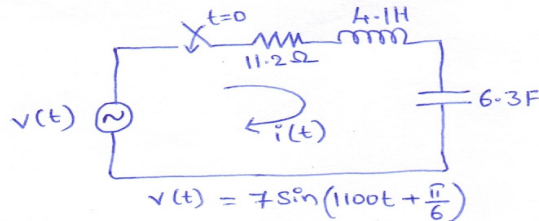 t=0
4.1H
11.2Ω
6.3F
v(t)
i(t)
v(t) = 7 sin(1100t + π/6)